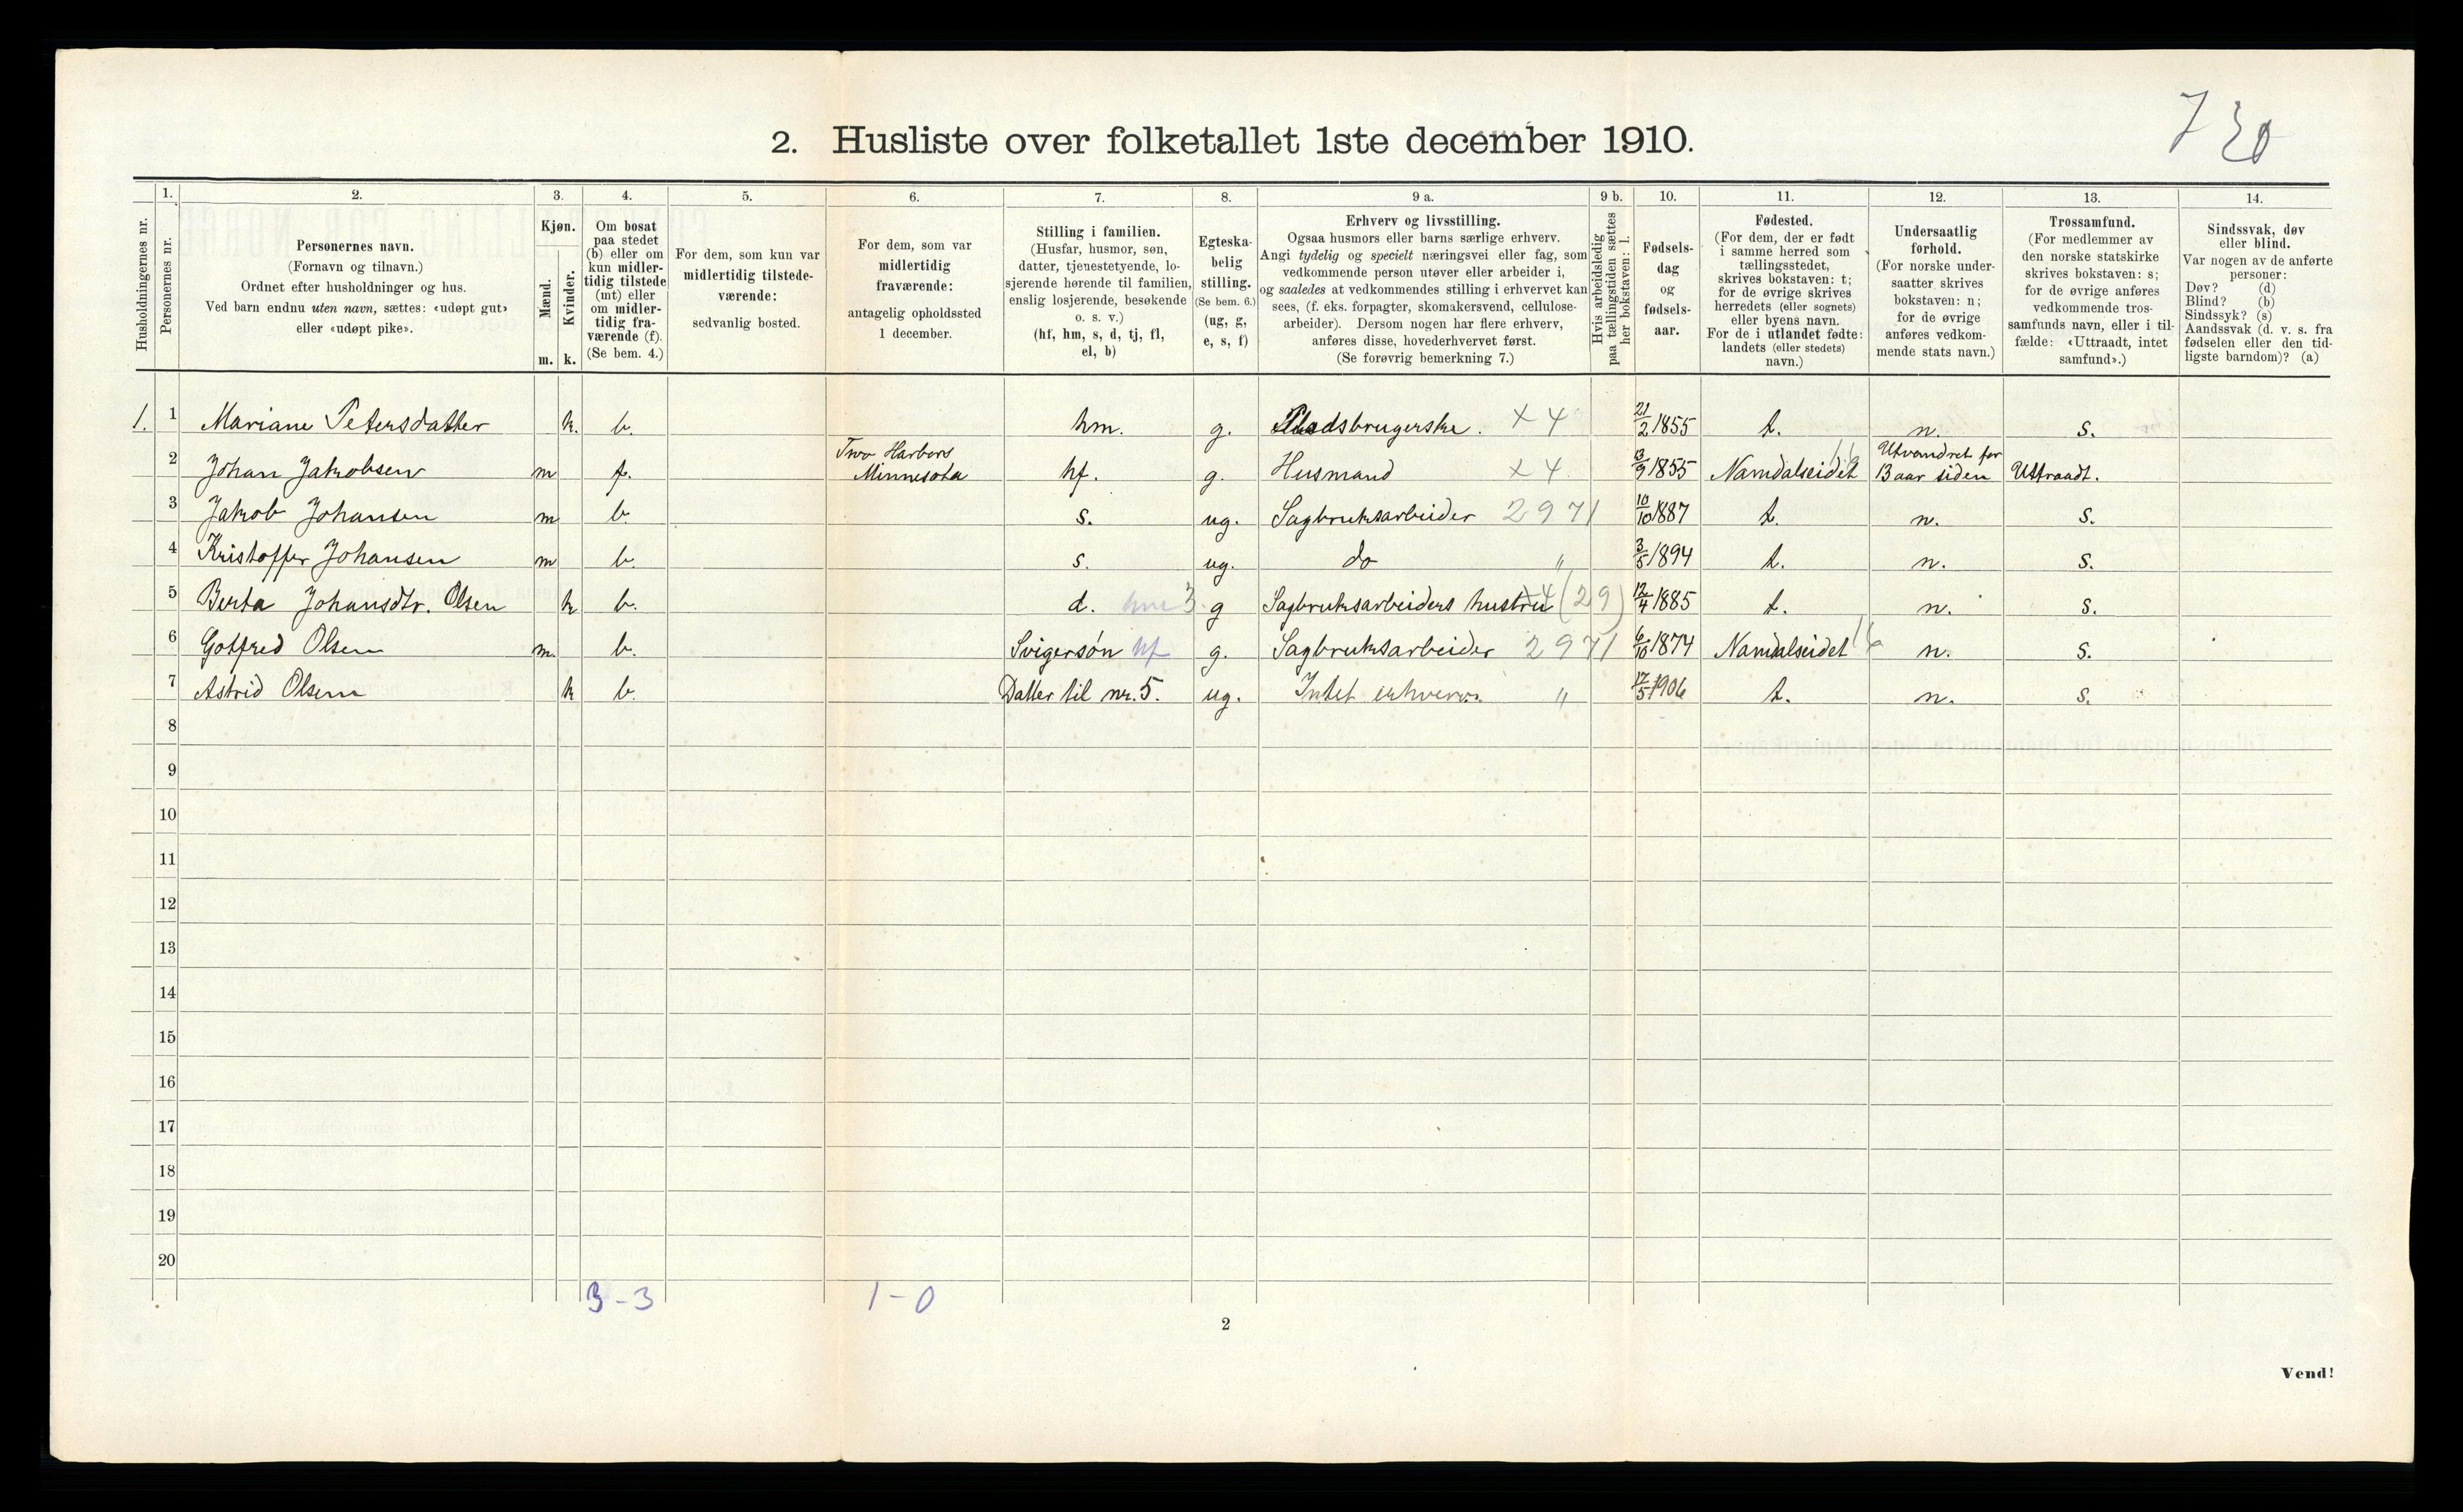 7 30
2. Husliste over folketallet 1ste december 1910.
Husholdningernes nr.
1.
Personernes nr.
2.
Personernes navn.
(Fornavn og tilnavn.)
Ordnet efter husholdninger og hus.
Ved barn endnu uten navn, sættes: «udøpt gut»
eller «udøpt pike».
3.
Kjøn.
Mænd.
Kvinder.
m. k.
4.
Om bosat
paa stedet
(b) eller om
kun midler-
tidig tilstede
(mt) eller
om midler-
tidig fra-
værende (f).
(Se bem. 4.)
5.
For dem, som kun var
midlertidig tilstede-
værende:
sedvanlig bosted.
6.
For dem, som var
midlertidig
fraværende:
antagelig opholdssted
1 december.
7.
Stilling i familien.
(Husfar, husmor, søn,
datter, tjenestetyende, lo-
sjerende hørende til familien,
enslig losjerende, besøkende
o. s. v.)
(hf, hm, s, d, tj, fl,
el, b)
8.
Egteska-
belig
stilling.
(Se bem. 6.)
(ug, g,
e, s, f)
9 a.
Erhverv og livsstilling.
Ogsaa husmors eller barns særlige erhverv.
Angi tydelig og specielt næringsvei eller fag, som
vedkommende person utøver eller arbeider i,
og saaledes at vedkommendes stilling i erhvervet kan
sees, (f. eks. forpagter, skomakersvend, cellulose-
arbeider). Dersom nogen har flere erhverv,
anføres disse, hovederhvervet først.
(Se forøvrig bemerkning 7.)
9 b.
Hvis arbeidsledig
paa tællingstiden sættes
her bokstaven: l.
10.
Fødsels-
dag
og
fødsels-
aar.
11.
Fødested.
(For dem, der er født
i samme herred som
tællingsstedet,
skrives bokstaven: t;
for de øvrige skrives
herredets (eller sognets)
eller byens navn.
For de i utlandet fødte:
landets (eller stedets)
navn.)
12.
Undersaatlig
forhold.
(For norske under-
saatter skrives
bokstaven: n;
for de øvrige
anføres vedkom-
mende stats navn.)
13.
Trossamfund.
(For medlemmer av
den norske statskirke
skrives bokstaven: s;
for de øvrige anføres
vedkommende tros-
samfunds navn, eller i til-
fælde: «Uttraadt, intet
samfund».)
14.
Sindssvak, døv
eller blind.
Var nogen av de anførte
personer:
Døv? (d)
Blind? (b)
Sindssyk? (s)
Aandssvak (d. v. s. fra
fødselen eller den tid-
ligste barndom)? (a)
1. 1 Mariane Petersdatter k. b. hm. g. Pladsbrugerske. x 4 21/2 1855 t. n. s.
2 Johan Jakobsen m f. Two Harbors Minnesota hf. g. Husmand x 4 13/9 1855 Namdalseidet 16 Utvandret for 13 aar siden Uttraadt.
3 Jakob Johansen m b. s. ug. Sagbruksarbeider 2971 10/10 1887 t. n. s.
4 Kristoffer Johansen m b. s. ug. do " 3/5 1894 t. n. s.
5 Berta Johansdtr. Olsen k b. d. 3 g Sagbruksarbeiders hustru x4 (29) 12/4 1885 t. n. s.
6 Gotfred Olsen m. b. Svigersøn hf g. Sagbruksarbeider 2971 6/10 1874 Namdalseidet 16 n. s.
7 Astrid Olsen k b. Datter til nr. 5. ug. Intet erhverv. " 17/5 1906 t. n. s.
8
9
10
11
12
13
14
15
16
17
18
19
20
3 - 3 1 - 0
2
Vend!